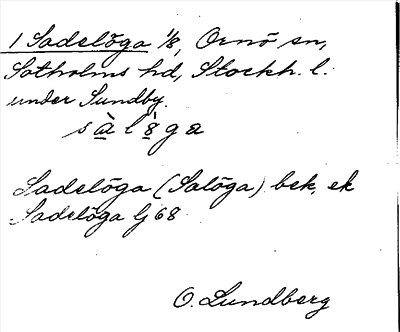 1 Sadelöga 1/8, Ornö sn,
Sotholms hd, Stockh. l.
under Sundby.
sàlöga
Sadelöga (Salöga) bek, ek
Sadelöga lj 68
O. Lundberg